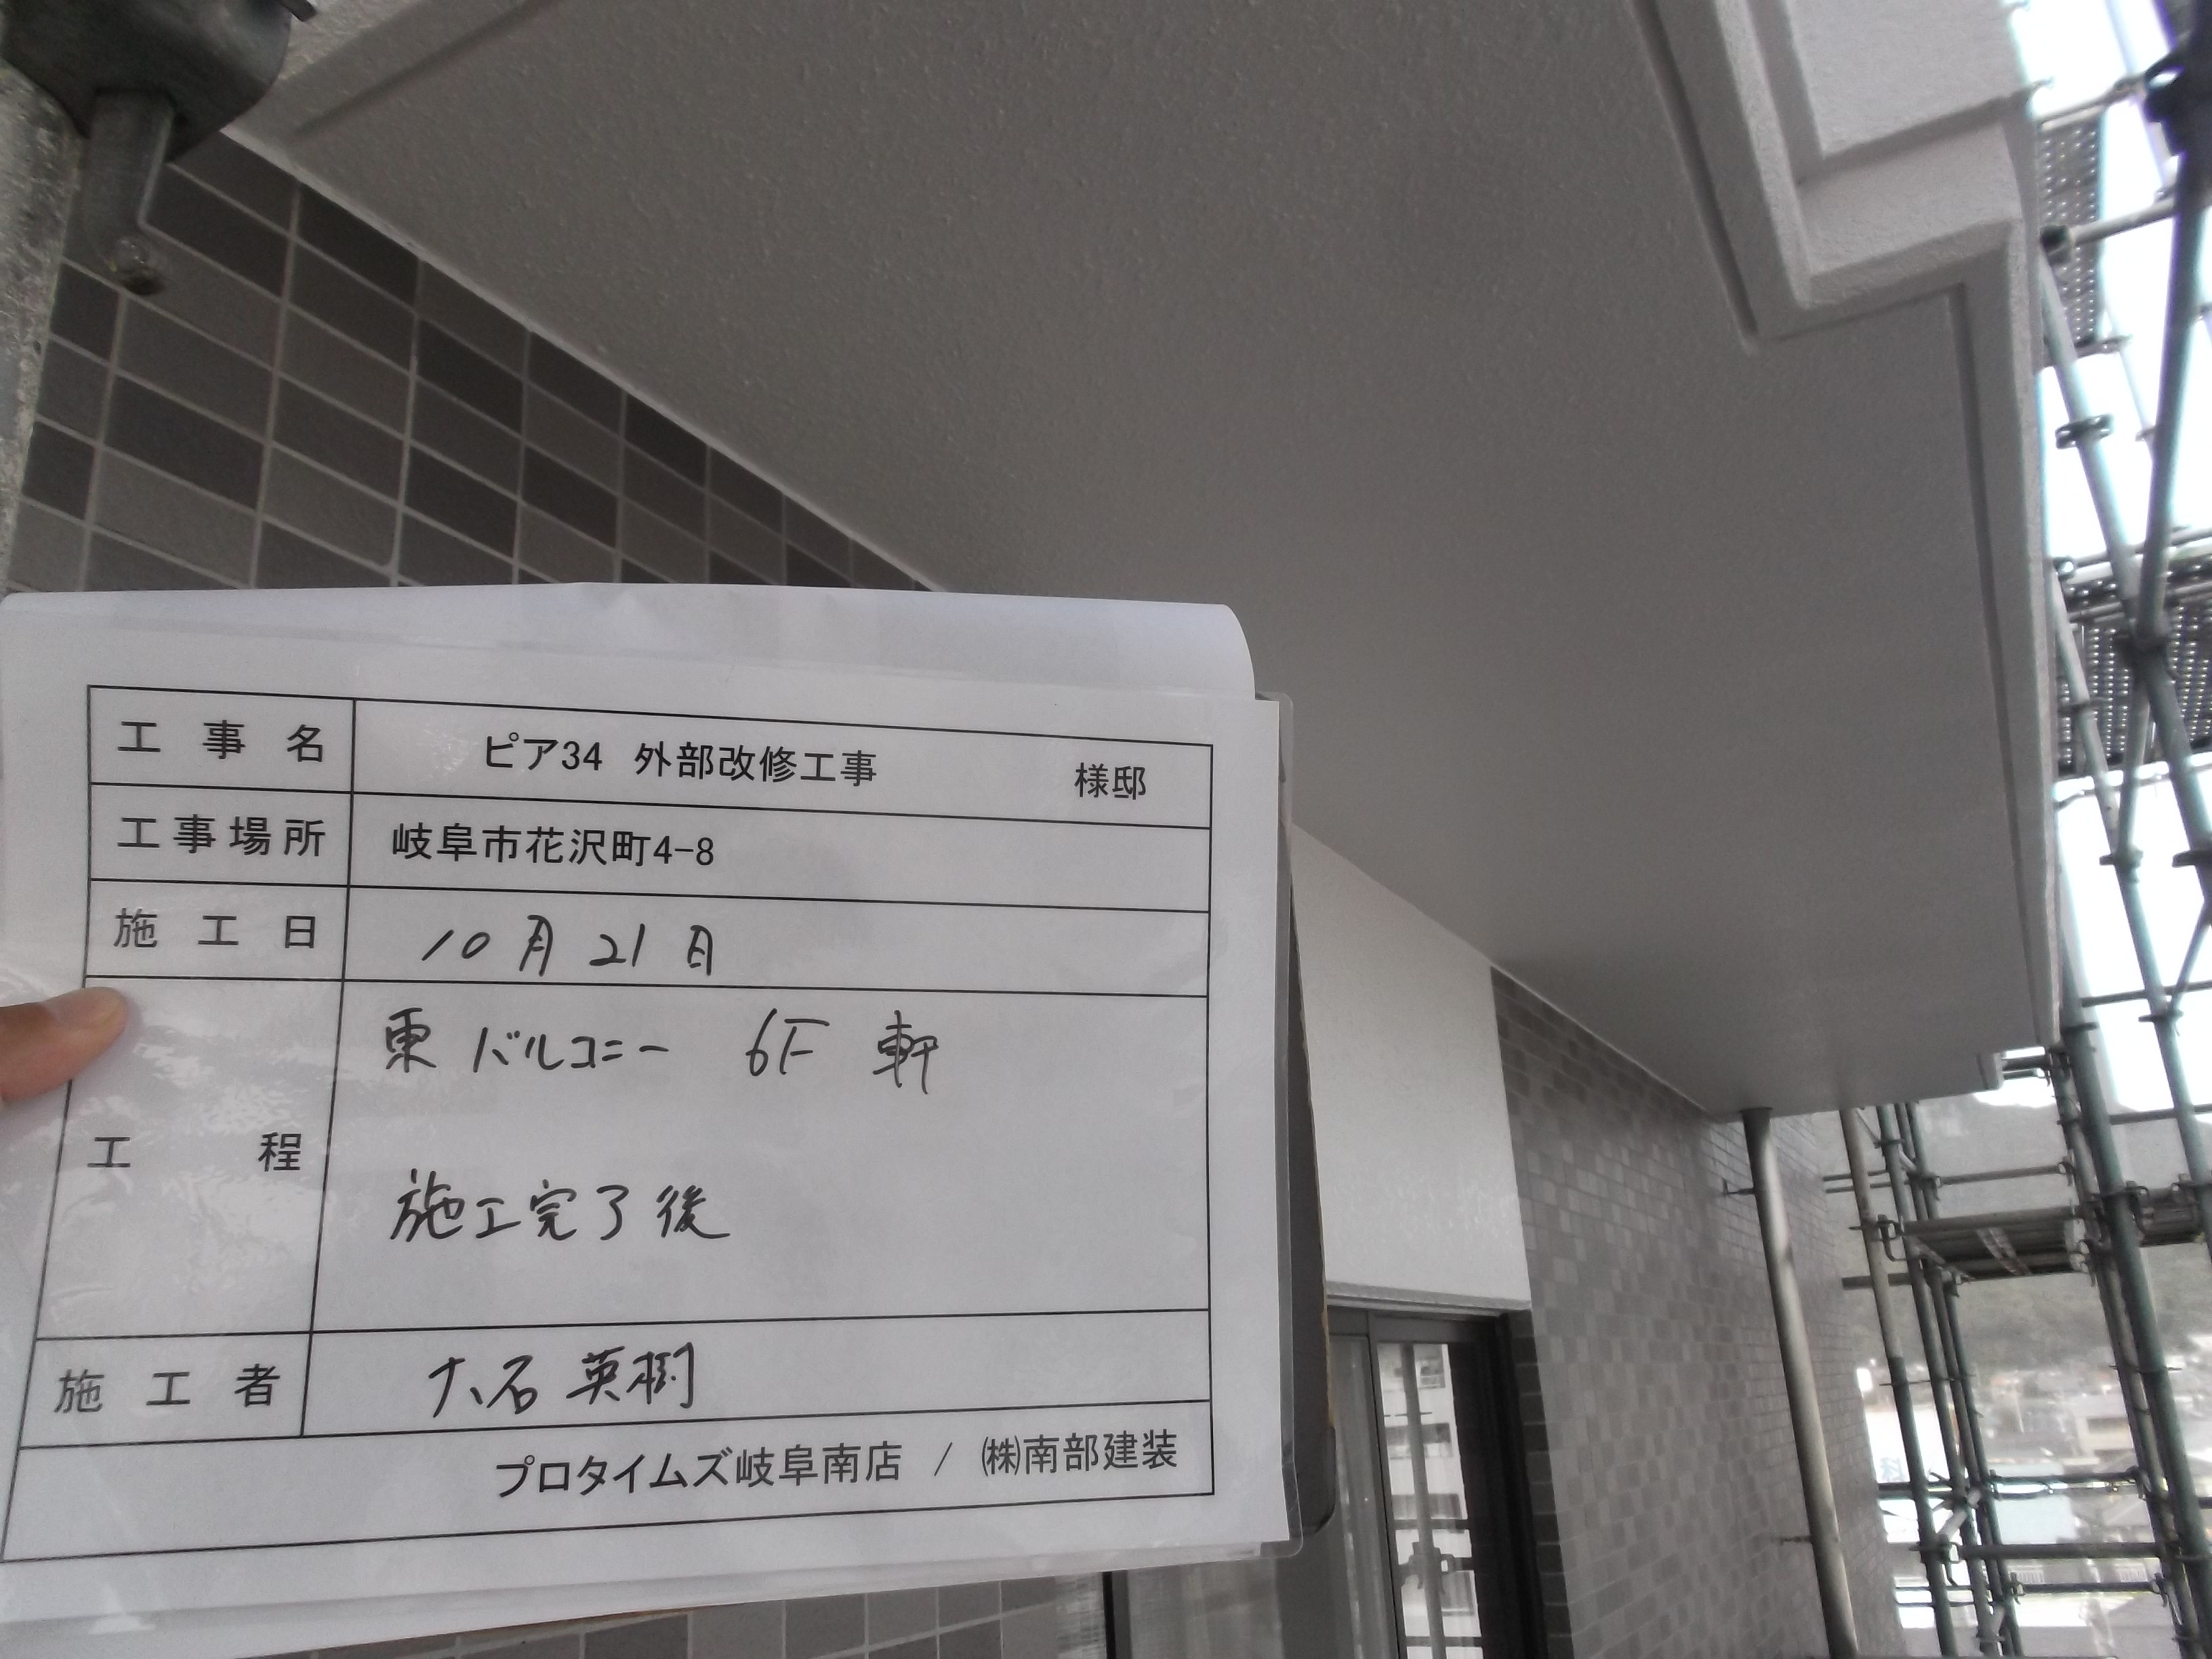 工事名 ピア34 外部改修工事 様邸
工事場所 岐阜市花沢町4-8
施工日 10月21日
東バルコニー 6F 軒
工程
施工完了後
施工者 大石 英樹
プロタイムズ岐阜南店 / ㈱南部建装
科